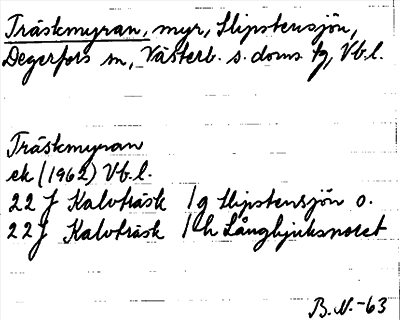 Träskmyran, myr, Slipstensjön,
Degerfors sn, Västerb. s. doms. fg, Vb.l.
Träskmyran
ek (1962) Vb.l.
22 J Kalvträsk 1g Slipstensjön o.
22 J Kalvträsk 1h Långbjuksnoret
B.N.-63